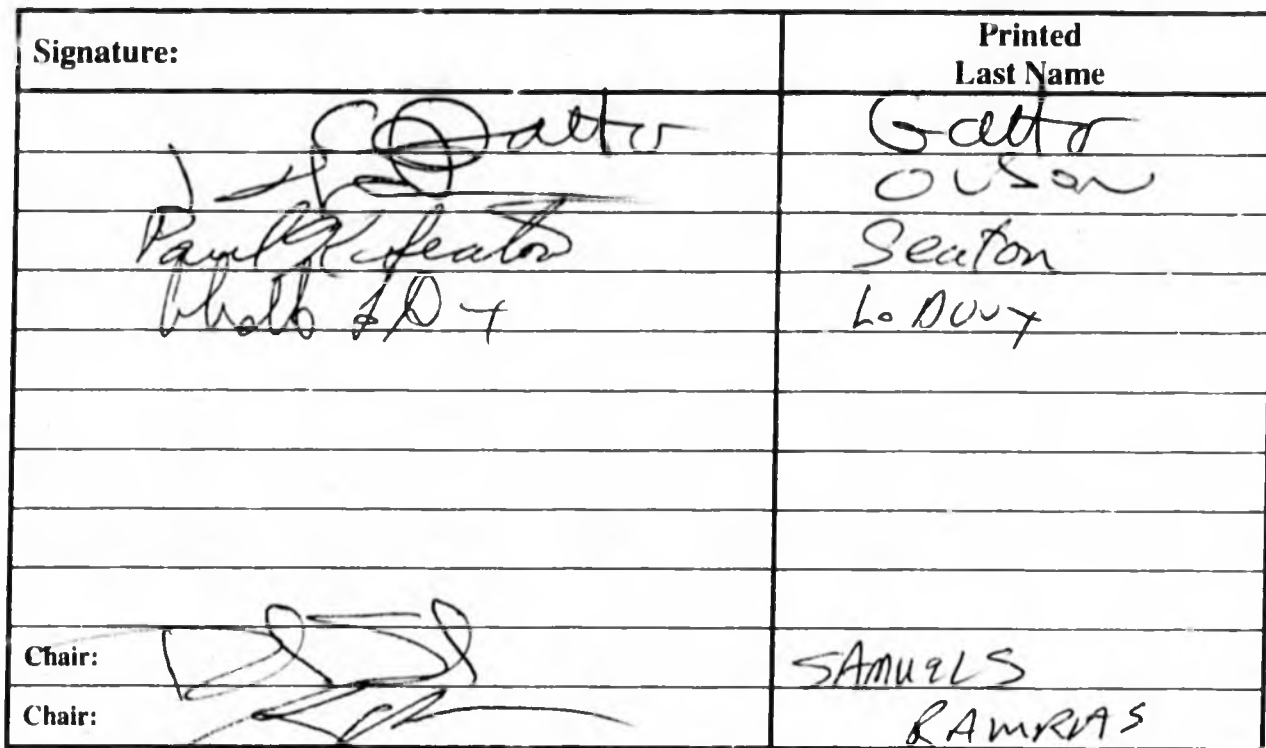 Signature:
Printed
Last Name
Gatto Gatto
Olson
Paul K. Seaton Seaton
LeDoux
Chair: SAMUELS
Chair: RAMRAS